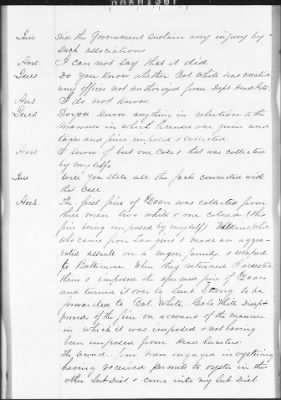 Ques Did the Government sustain any injury by
such associations
Ans I can not say that it did
Ques Do you know whether Col White has created
any offices not authorized from Dept Head Qrs.
Ans I do not know.
Ques Do you know anything in relation to the
manner in which licenses were given and
taxes and fines imposed & collected
Ans I know of but one case & that was collected
by myself.
Ques Will you state all the facts connected with
this case.
Ans The first fine of was collected from
three men two white & one colored (this
fine being imposed by myself)
who came from & made an aggra-
vated assault on a negro family, & escaped
to Baltimore When they returned I arrested
them & imposed the above said fine of
and turned it over to Lieut to be
forwarded to Col White, Col. White disap-
proved of the fine on account of the manner
in which it was imposed & not having
been imposed from Head Quarters.
The second four men engaged in oystering
having received permits to oyster in this
other Sub Dist & came into my Sub Dist